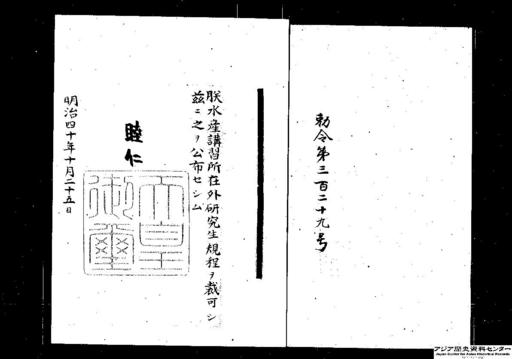 勅令第三百二十九号
朕水産講習所在外研究生規程ヲ裁可シ
茲ニ之ヲ公布セシム
睦仁
天皇御璽
明治四十年十月二十五日
アジア歴史資料センター
Japan Center for Asian Historical Records